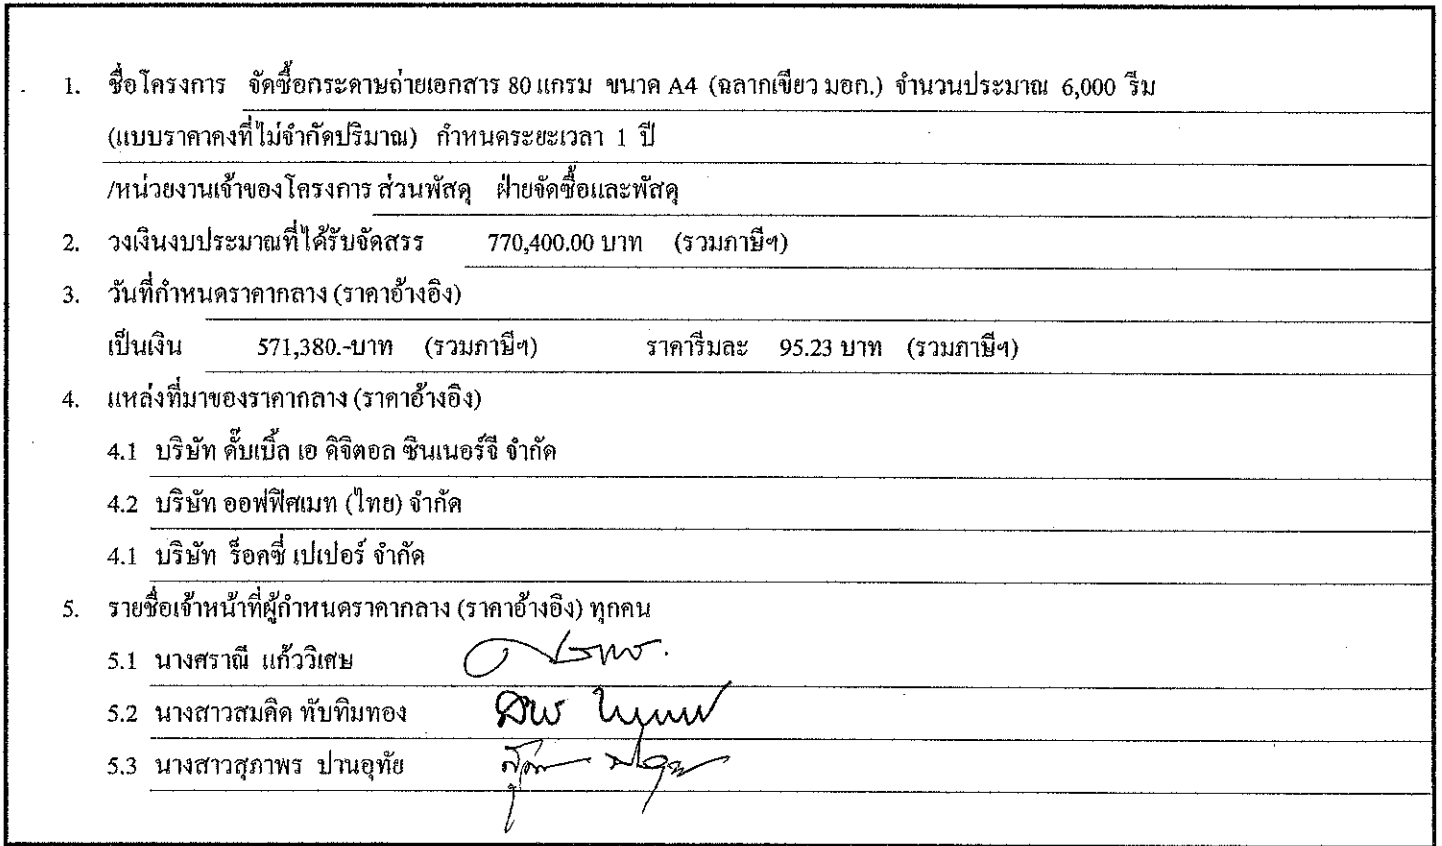 1. ชื่อโครงการ จัดซื้อกระดาษถ่ายเอกสาร 80 แกรม ขนาด A4 (ฉลากเขียว มอก.) จำนวนประมาณ 6,000 รีม
(แบบราคาคงที่ไม่จำกัดปริมาณ) กำหนดระยะเวลา 1 ปี
/หน่วยงานเจ้าของโครงการ ส่วนพัสดุ ฝ่ายจัดซื้อและพัสดุ
2. วงเงินงบประมาณที่ได้รับจัดสรร 770,400.00 บาท (รวมภาษีฯ)
3. วันที่กำหนดราคากลาง (ราคาอ้างอิง)
เป็นเงิน 571,380.-บาท (รวมภาษีฯ) ราคารีมละ 95.23 บาท (รวมภาษีฯ)
4. แหล่งที่มาของราคากลาง (ราคาอ้างอิง)
4.1 บริษัท ดั๊บเบิ้ล เอ ดิจิตอล ซินเนอร์จี จำกัด
4.2 บริษัท ออฟฟิศเมท (ไทย) จำกัด
4.1 บริษัท ร็อคซี่ เปเปอร์ จำกัด
5. รายชื่อเจ้าหน้าที่ผู้กำหนดราคากลาง (ราคาอ้างอิง) ทุกคน
5.1 นางศราณี แก้ววิเศษ
5.2 นางสาวสมคิด ทับทิมทอง
5.3 นางสาวสุภาพร ปานอุทัย